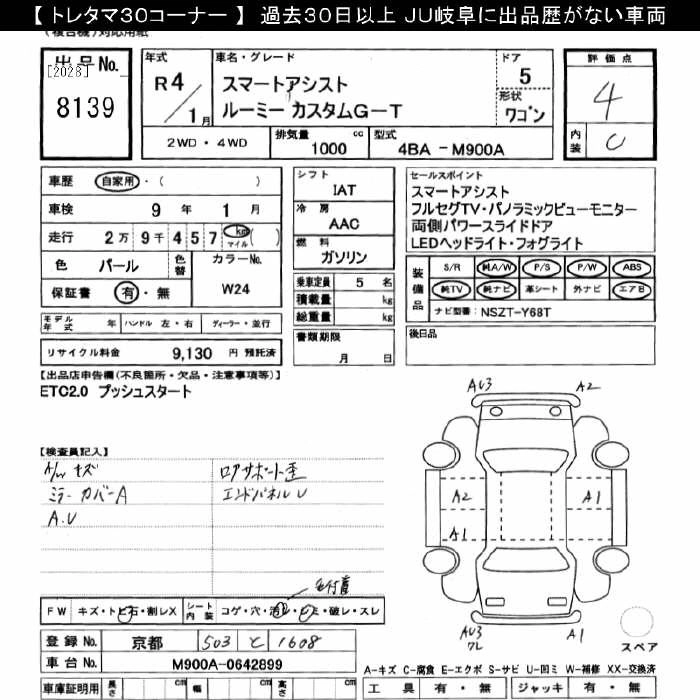 【 トレタマ30コーナー 】 過去30日以上 JU岐阜に出品歴がない車両
(複合機)対応用紙
出品No.
[2028]
8139
年式
R4/1月
車名・グレード
スマートアシスト
ルーミー カスタムG-T
ドア
5
形状
ワゴン
評価点
4
内装
C
2WD・4WD
排気量 1000 cc
型式 4BA -M900A
車歴 自家用・( )
車検 9年 1月
走行 2万 9千 4 5 7 km マイル ( )
色 パール
色替
カラーNo.
W24
保証書 有・無
シフト
IAT
冷房
AAC
燃料
ガソリン
乗車定員 5 名
積載量 kg
総重量 kg
セールスポイント
スマートアシスト
フルセグTV・パノラミックビューモニター
両側パワースライドドア
LEDヘッドライト・フォグライト
装備品
S/R 純A/W P/S P/W ABS
純TV 純ナビ 革シート 外ナビ エアB
ナビ型番: NSZT-Y68T
モデル年式 年 ハンドル 左・右 ディーラー・並行
書類期限
月 日
後日品
リサイクル料金 9,130 円 預託済
【出品店申告欄(不良箇所・欠品・注意事項等)】
ETC2.0 プッシュスタート
【検査員記入】
A/W キズ
ミラーカバーA
A.U
ロアサポート歪
エンドパネルU
AU3
A2
A2
A1
A1
AU3
ワレ
A1
スペア
シミ付着
FW キズ・トビ石・割レX
シート内装 コゲ・穴・汚レ・シミ・破レ・スレ
登録No. 京都 503 と 1608
車台No. M900A-0642899
車庫証明用 長さ cm 幅 cm 高さ cm
A-キズ C-腐食 E-エクボ S-サビ U-凹ミ W-補修 XX-交換済
工具 有・無 ジャッキ 有・無